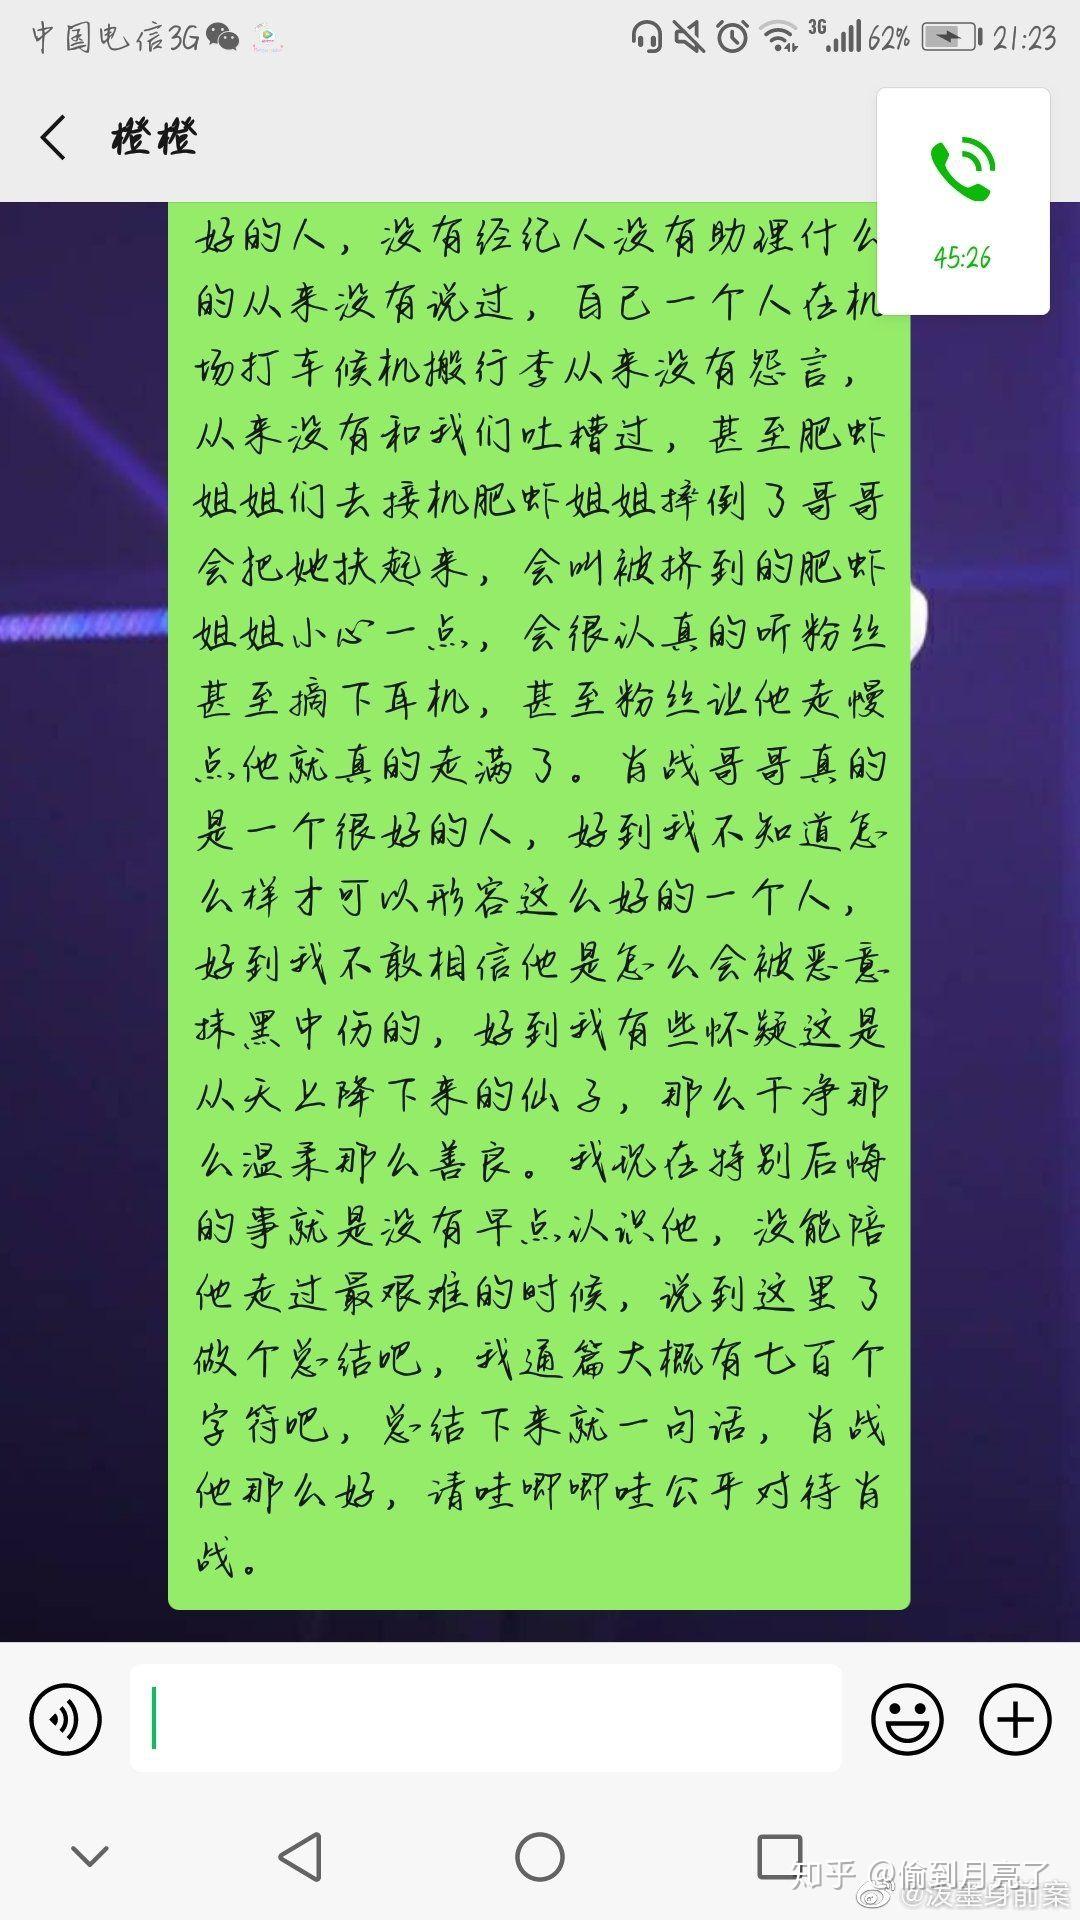 中国电信3G
3G
62%
21:23
橙橙
45:26
好的人，没有经纪人没有助理什么
的从来没有说过，自己一个人在机
场打车候机搬行李从来没有怨言，
从来没有和我们吐槽过，甚至肥虾
姐姐们去接机肥虾姐姐摔倒了哥哥
会把她扶起来，会叫被挤到的肥虾
姐姐小心一点，会很认真的听粉丝
甚至摘下耳机，甚至粉丝让他走慢
点他就真的走满了。肖战哥哥真的
是一个很好的人，好到我不知道怎
么样才可以形容这么好的一个人，
好到我不敢相信他是怎么会被恶意
抹黑中伤的，好到我有些怀疑这是
从天上降下来的仙子，那么干净那
么温柔那么善良。我现在特别后悔
的事就是没有早点认识他，没能陪
他走过最艰难的时候，说到这里了
做个总结吧，我通篇大概有七百个
字符吧，总结下来就一句话，肖战
他那么好，请哇唧唧哇公平对待肖
战。
知乎 @偷到月亮了
@泼墨身前案